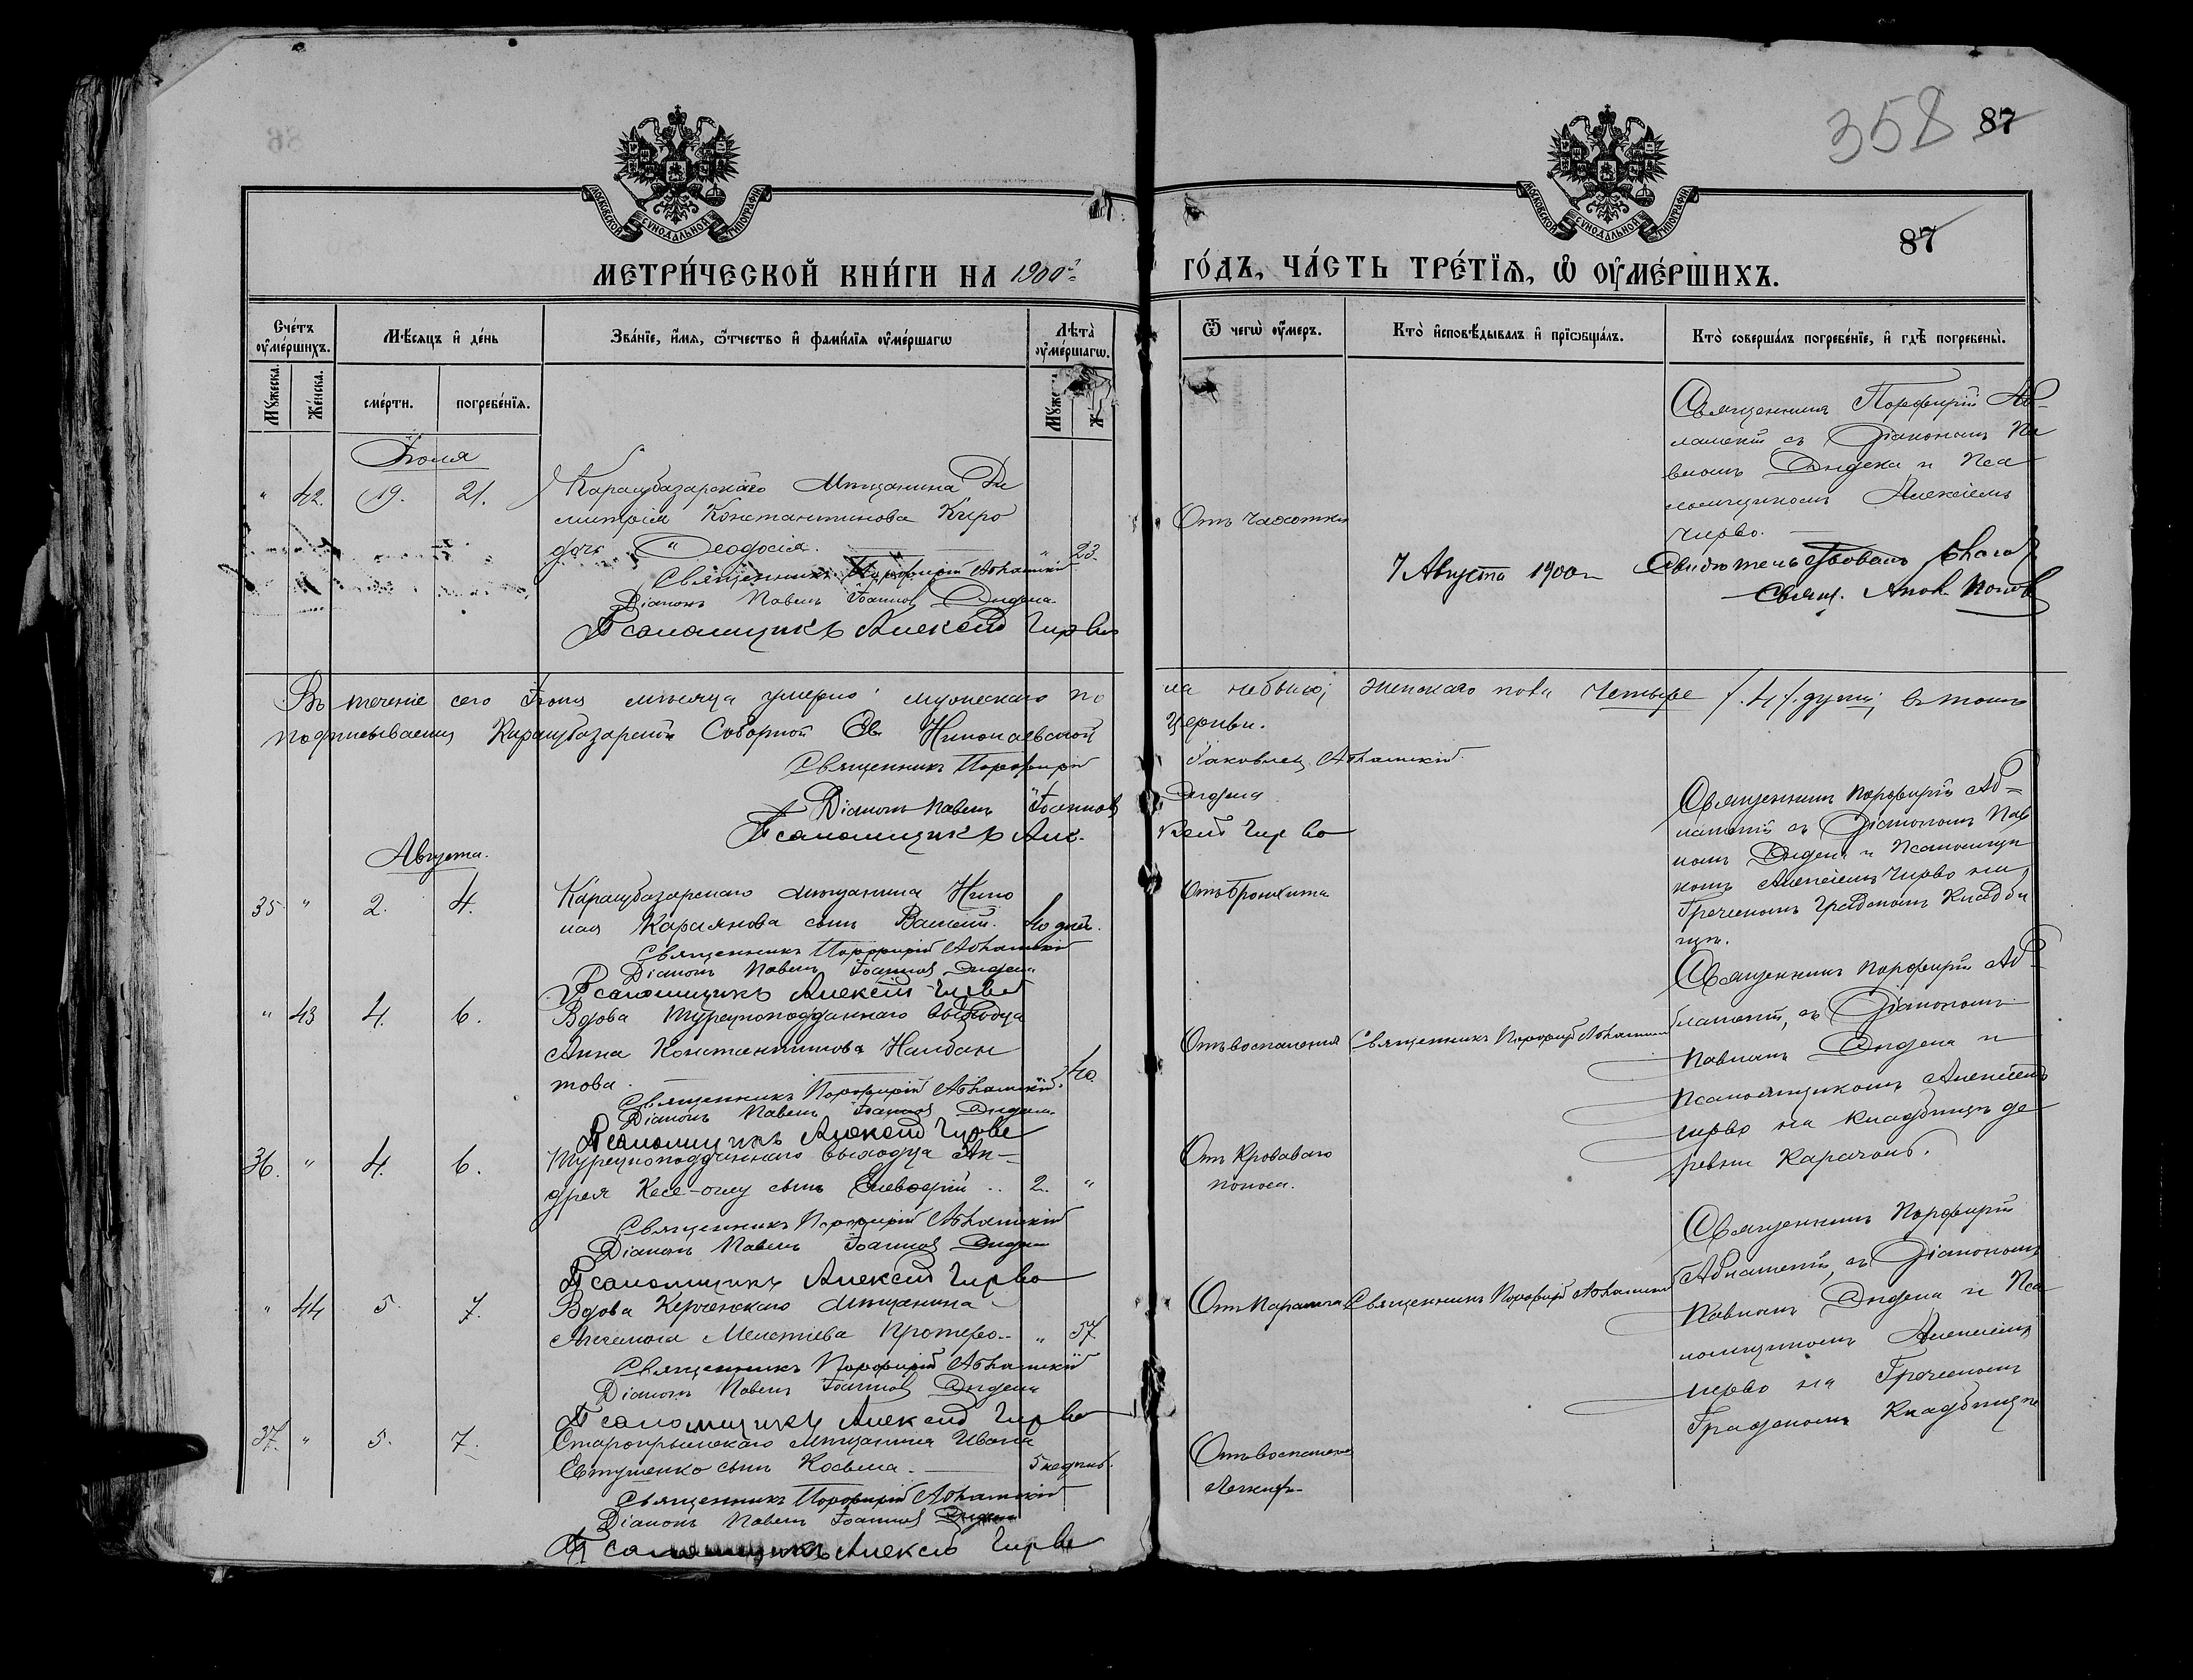 358 87
87
МОСКОВСКОЙ СѴНОДАЛЬНОЙ ТИПОГРАФІИ
МОСКОВСКОЙ СѴНОДАЛЬНОЙ ТИПОГРАФІИ
МЕТРИ́ЧЕСКОЙ КНИ́ГИ НА 1900й ГО́ДЪ, ЧА́СТЬ ТРЕ́ТІѦ, Ѡ҆ ОУ҆МЕ́РШИХЪ.
Сче́тъ оу҆ме́ршихъ.
Мѣ́сяцъ и҆ де́нь
Зва́нїе, и҆́мя, ѻ҆́тчество и҆ фами́лїя оу҆ме́ршагѡ
Лѣта̀ оу҆ме́ршагѡ.
Ѿ чегѡ̀ оу҆́меръ.
Кто̀ и҆сповѣ́дывалъ и҆ прїѡбща́лъ.
Кто̀ соверша́лъ погребе́нїе, и҆ гдѣ̀ погребены̀.
Му́жеска.
Же́нска.
сме́рти.
погребе́нїя.
Іюля
" 42. 19. 21.
Карасубазарскаго Мѣщанина Ди
митрія Константинова Киро
дочь Ѳеодосія. " 23
Священникъ Порфирій Абламскій
Діаконъ Павелъ Іоанновъ
Псаломщикъ Алексій Чирво
Отъ чахотки
Священникъ Порфирій Аб-
ламскій съ Діакономъ Па
вломъ и Пса
ломщикомъ Алексіемъ
Чирво.
7 Августа 1900 г. Свидѣтельствовалъ
Свящ. Попов
Въ теченіе сего Іюля мѣсяца умерло мужескаго по
ла небыло; женскаго пола четыре /.4/. души; въ томъ
подписываемся Карасубазарской Соборной Св. Николаевской
Церкви.
Священникъ Порфирій Іаковлевъ Абламскій
Діаконъ Павелъ Іоанновъ
Псаломщикъ Алексій Чирво
Августа.
35 " 2. 4.
Карасубазарскаго мѣщанина Нико
лая сынъ Василій. 40 дней.
Священникъ Порфирій Абламскій
Діаконъ Павелъ Іоанновъ
Псаломщикъ Алексій Чирво
Отъ бронхита
Священникъ Порфирій Аб-
ламскій съ Діакономъ Пав
ломъ и Псаломщи
комъ Алексіемъ Чирво на
Греческомъ Градскомъ Кладби
щѣ.
" 43 4. 6.
Вдова Турецкоподданнаго выходца
Анна Константинова Налбан
това. 40.
Священникъ Порфирій Абламскій
Діаконъ Павелъ Іоанновъ
Псаломщикъ Алексій Чирво
Отъ воспаленія Священникъ Порфирій Абламскій
Священникъ Порфирій Аб-
ламскій, съ Діакономъ
Павломъ и
Псаломщикомъ Алексіемъ
Чирво на кладбищѣ де
ревни
36. " 4. 6.
Турецкоподданнаго выходца Ан-
дрея Кесе-оглу сынъ Елевферій 2. "
Священникъ Порфирій Абламскій
Діаконъ Павелъ Іоанновъ
Псаломщикъ Алексій Чирво
Отъ кроваваго
поноса.
" 44 5. 7.
Вдова Керченскаго Мѣщанина
Мелетіева " 57
Священникъ Порфирій Абламскій
Діаконъ Павелъ Іоанновъ
Псаломщикъ Алексій Чирво
Отъ паралича Священникъ Порфирій Абламскій
Священникъ Порфирій
Абламскій, съ Діакономъ
Павломъ и Пса
ломщикомъ Алексіемъ
Чирво на Греческомъ
Градскомъ Кладбищѣ
37. " 5. 7.
Старокрымскаго Мѣщанина Ивана
Евтушенко сынъ Косьма. 5 недѣль.
Священникъ Порфирій Абламскій
Діаконъ Павелъ Іоанновъ
Псаломщикъ Алексій Чирво
Отъ воспаленія
легкихъ